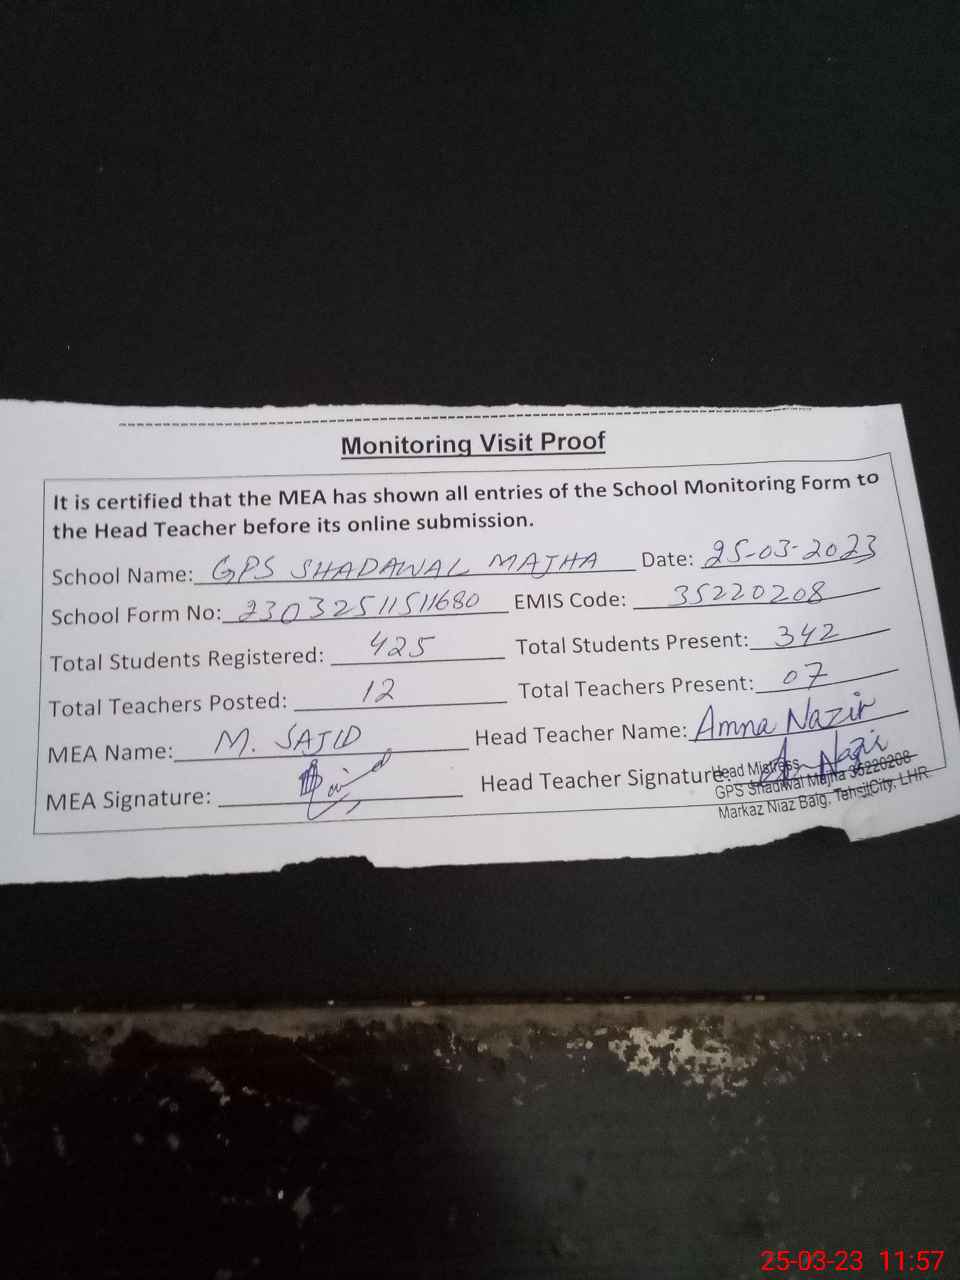 Monitoring Visit Proof
It is certified that the MEA has shown all entries of the School Monitoring Form to
the Head Teacher before its online submission.
School Name: GPS SHADAWAL MAJHA Date: 25-03-2023
School Form No: 2303251151​1680 EMIS Code: 35220208
Total Students Registered: 425 Total Students Present: 342
Total Teachers Posted: 12 Total Teachers Present: 07
MEA Name: M. SAJID Head Teacher Name: Amna Nazir
MEA Signature: Head Teacher Signature: Nazir
Head Mistress
GPS Shadiwal Majha 35220208
Markaz Niaz Baig, Tehsil City, LHR
25-03-23 11:57